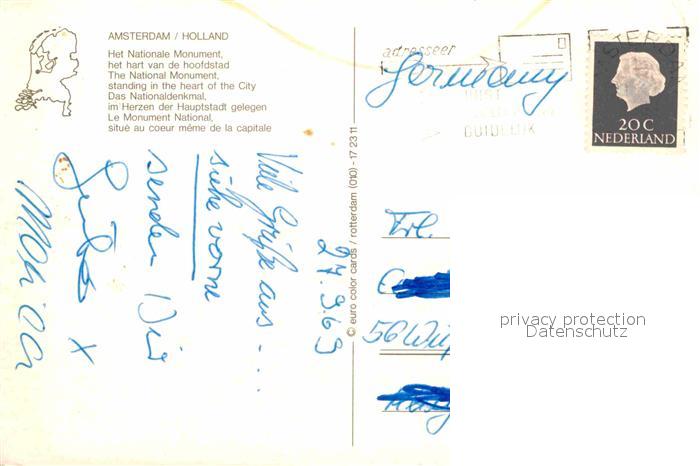 AMSTERDAM / HOLLAND
Het Nationale Monument,
het hart van de hoofdstad
The National Monument,
standing in the heart of the City
Das Nationaldenkmal,
im Herzen der Hauptstadt gelegen
Le Monument National,
situé au coeur même de la capitale
27.9.69
Viele Grüße aus - ...
siehe vorne
senden Dir
x
Monica
© euro color cards / rotterdam (010) - 17 23 11
adresseer
DUIDELIJK
Germany
20 C
NEDERLAND
Frl.
56 Wup
privacy protection
Datenschutz